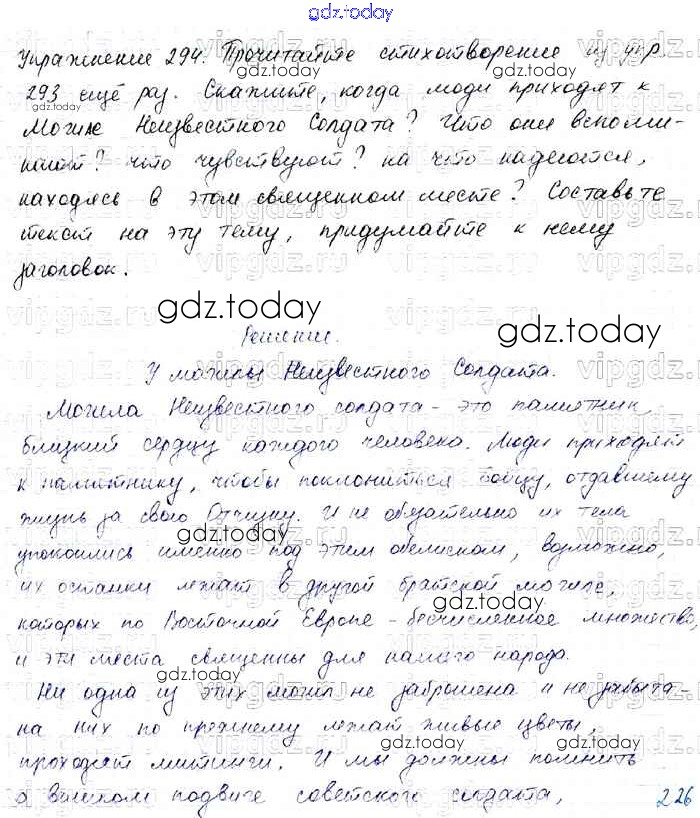 gdz.today
Упражнение 294. Прочитайте стихотворение из упр.
293 ещё раз. Скажите, когда люди приходят к
Могиле Неизвестного Солдата? Что они вспоми-
нают? что чувствуют? на что надеются,
находясь в этом священном месте? Составьте
текст на эту тему, придумайте к нему
заголовок.
gdz.today
gdz.today
Решение.
У могилы Неизвестного Солдата.
Могила Неизвестного солдата - это памятник,
близкий сердцу каждого человека. Люди приходят
к памятнику, чтобы поклониться бойцу, отдавшему
жизнь за свою Отчизну. И не обязательно их тела
упокоились именно под этим обелиском, возможно,
их останки лежат в другой братской могиле,
которых по Восточной Европе - бесчисленное множество,
и эти места священны для нашего народа.
Ни одна из этих могил не заброшена и не забыта -
на них по прежнему лежат живые цветы,
проходят митинги. И мы должны помнить
о великом подвиге советского солдата,
226